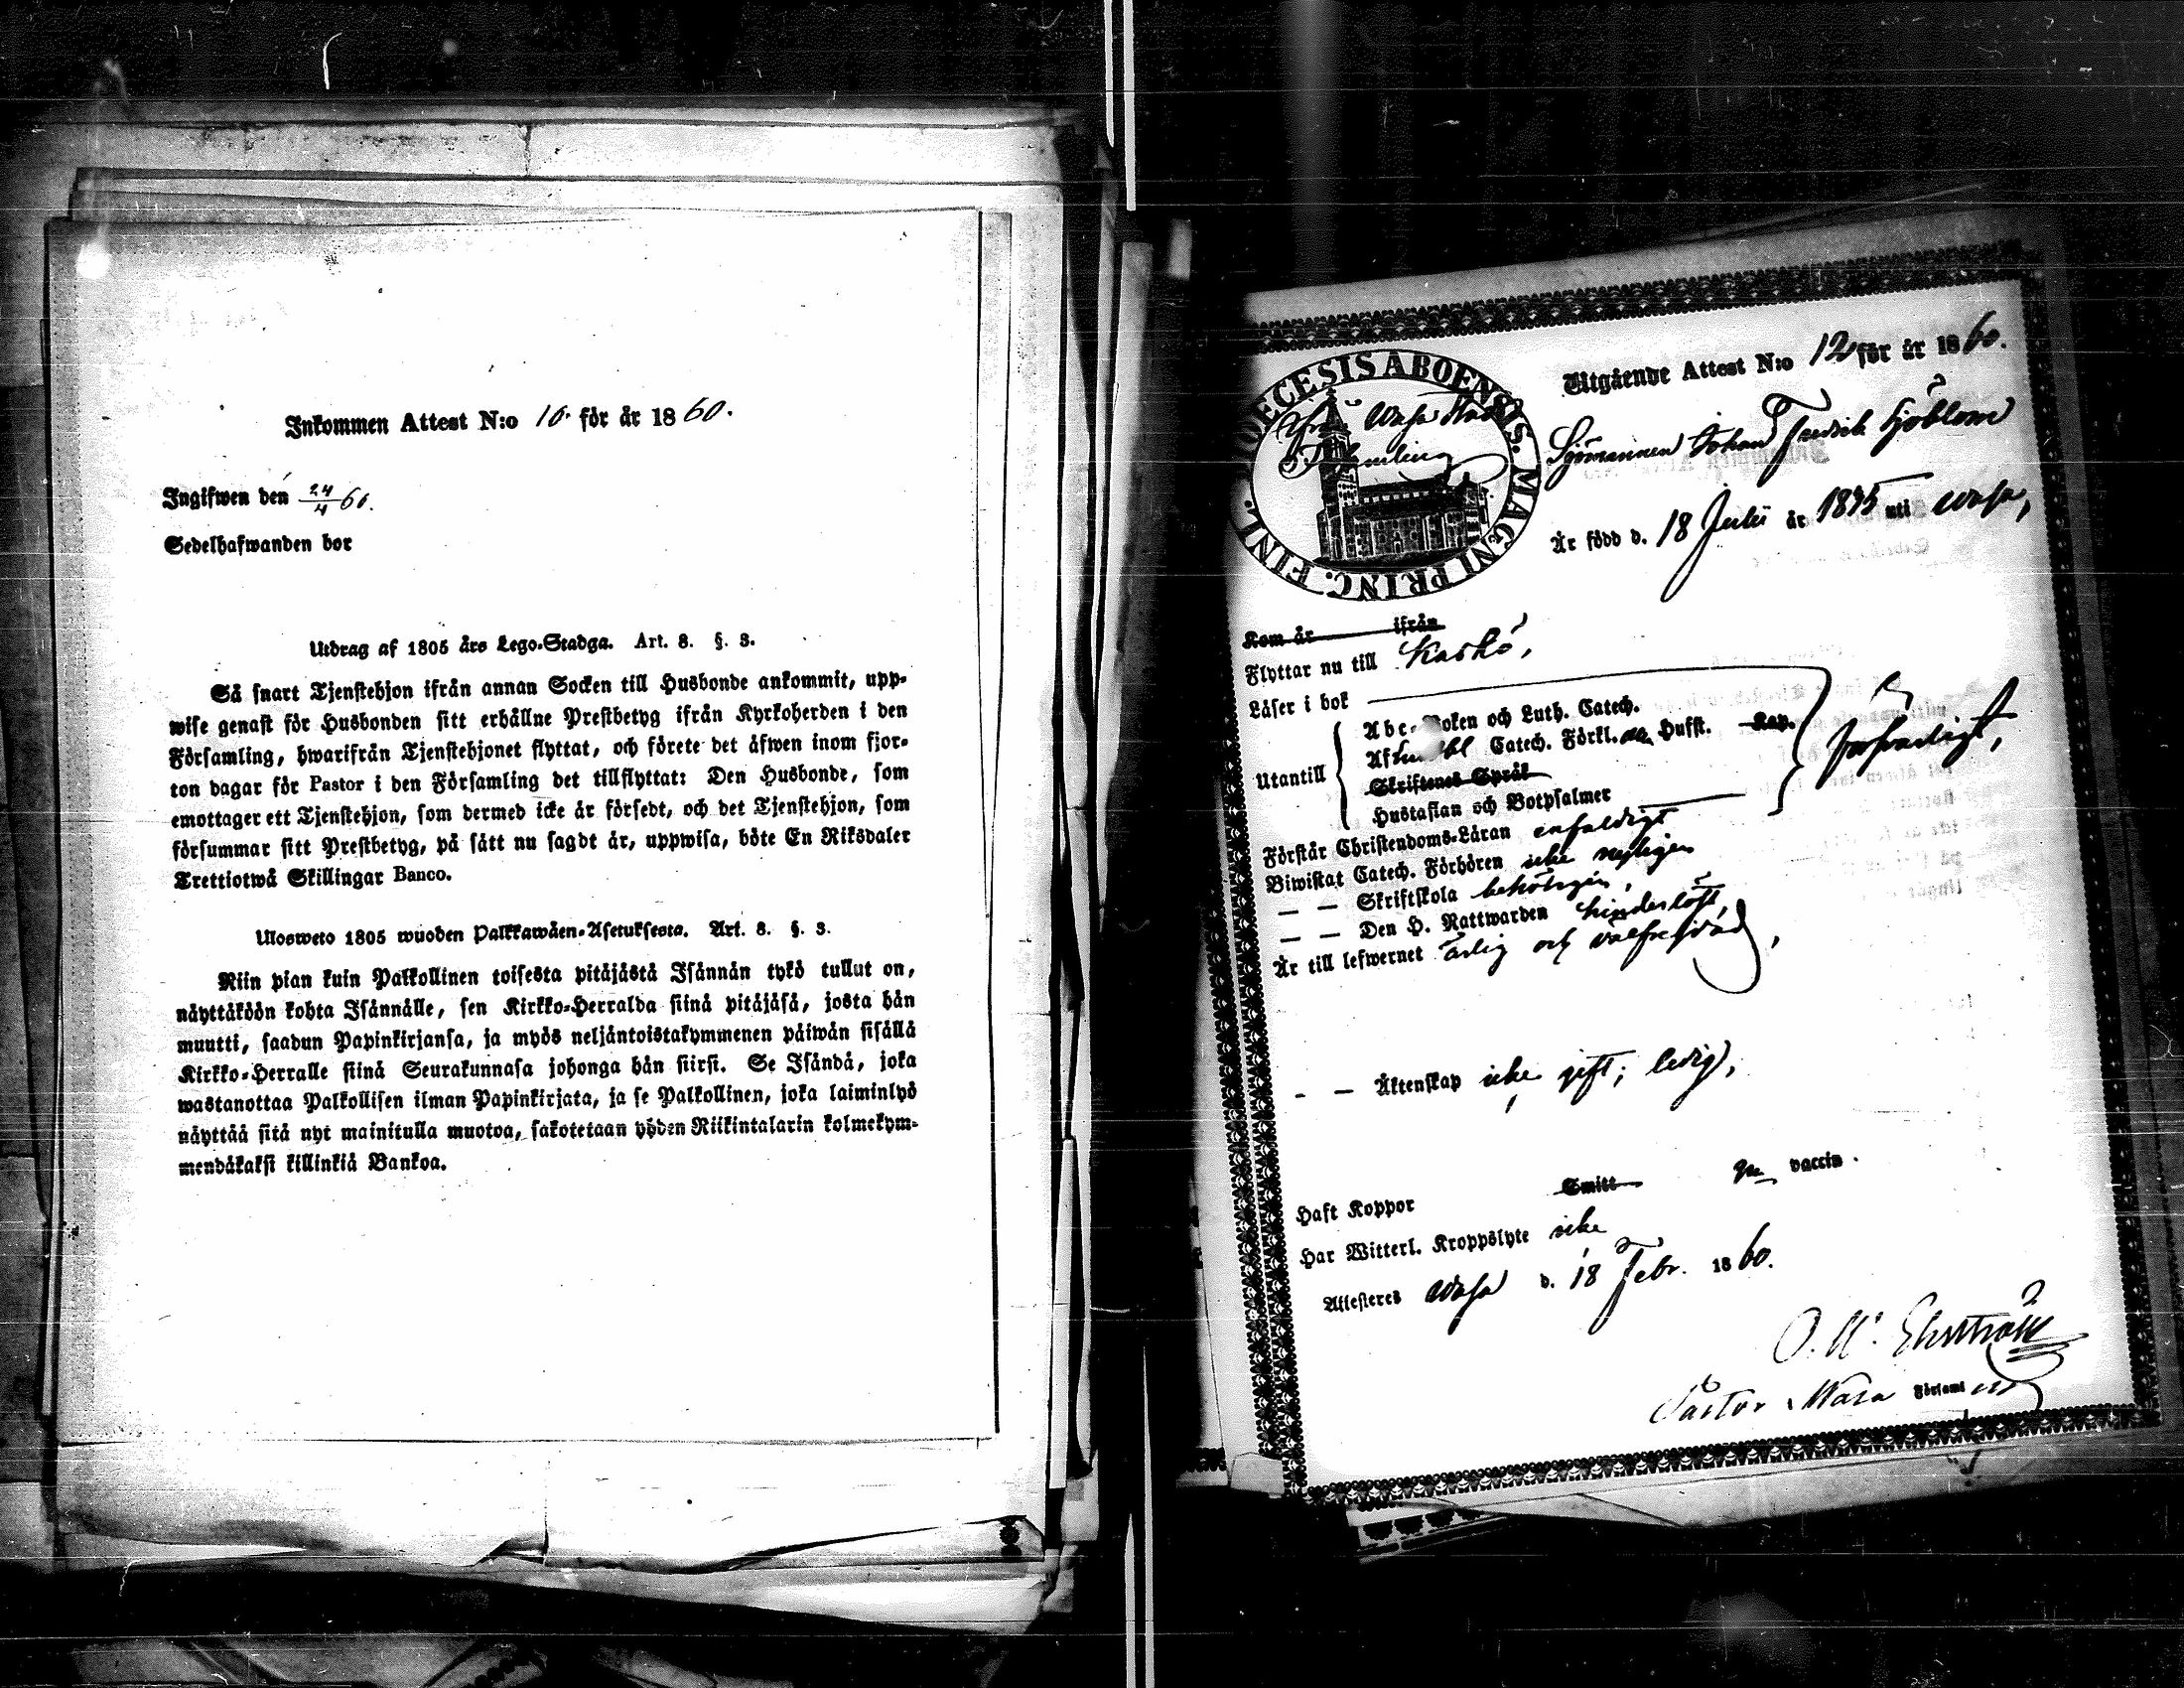 Inkommen Attest N:o 10. för år 1860.
Ingifwen den 24/4 60.
Sedelhafwanden bor
Utdrag af 1805 års Lego-Stadga. Art. 8. §. 3.
Så snart Tjenstehjon ifrån annan Socken till Husbonde ankommit, upp-
wise genast för Husbonden sitt erhållne Prestbetyg ifrån Kyrkoherden i den
Församling, hwarifrån Tjenstehjonet flyttat, och förete det äfwen inom fjor-
ton dagar för Pastor i den Församling det tillflyttat: Den Husbonde, som
emottager ett Tjenstehjon, som dermed icke är försedt, och det Tjenstehjon, som
försummar sitt Prestbetyg, på sätt nu sagdt är, uppwisa, böte En Riksdaler
Trettiotwå Skillingar Banco.
Ulosweto 1805 wuoden Palkkawäen-Asetuksesta. Art. 8. §. 3.
Niin pian kuin Palkollinen toisesta pitäjästä Isännän tykö tullut on,
näyttäköön kohta Isännälle, sen Kirkko-Herralda siinä pitäjäsä, josta hän
muutti, saadun Papinkirjansa, ja myös neljäntoistakymmenen päiwän sisällä
Kirkko-Herralle siinä Seurakunnasa johonga hän siirsi. Se Isändä, joka
wastanottaa Palkollisen ilman Papinkirjata, ja se Palkollinen, joka laiminlyö
näyttää sitä nyt mainitulla muotoa, sakotetaan yhden Riikintalarin kolmekym-
mendäkaksi killinkiä Bankoa.
DIOECESIS ABOENSIS. MAGNI PRINC. FINL.
Från Wasa Stads
Församling
Utgående Attest N:o 12 för år 1860.
Sjömannen Johan Fredrik Sjöblom
Är född d. 18 Julii år 1835 uti Wasa,
Kom år ifrån
Flyttar nu till Kaskö,
Läser i bok
Utantill
Abc-Boken och Luth. Catech.
Catech. Förkl. Husst. Kap.
Skriftenes Språk
Hustaflan och Botpsalmer
försvarligt,
Förstår Christendoms-Läran enfaldigt
Biwistat Catech. Förhören icke nyligen
— — Skriftskola behörigen,
— — Den H. Nattwarden hinderslöst,
Är till lefwernet ärlig och välfrejdad,
- — Äktenskap icke gift; ledig,
Haft Koppor Smitt gm vaccin.
Har Witterl. Kroppslyte icke
Attesteres Wasa d. 18 Febr. 1860.
Pastor Wasa Församl